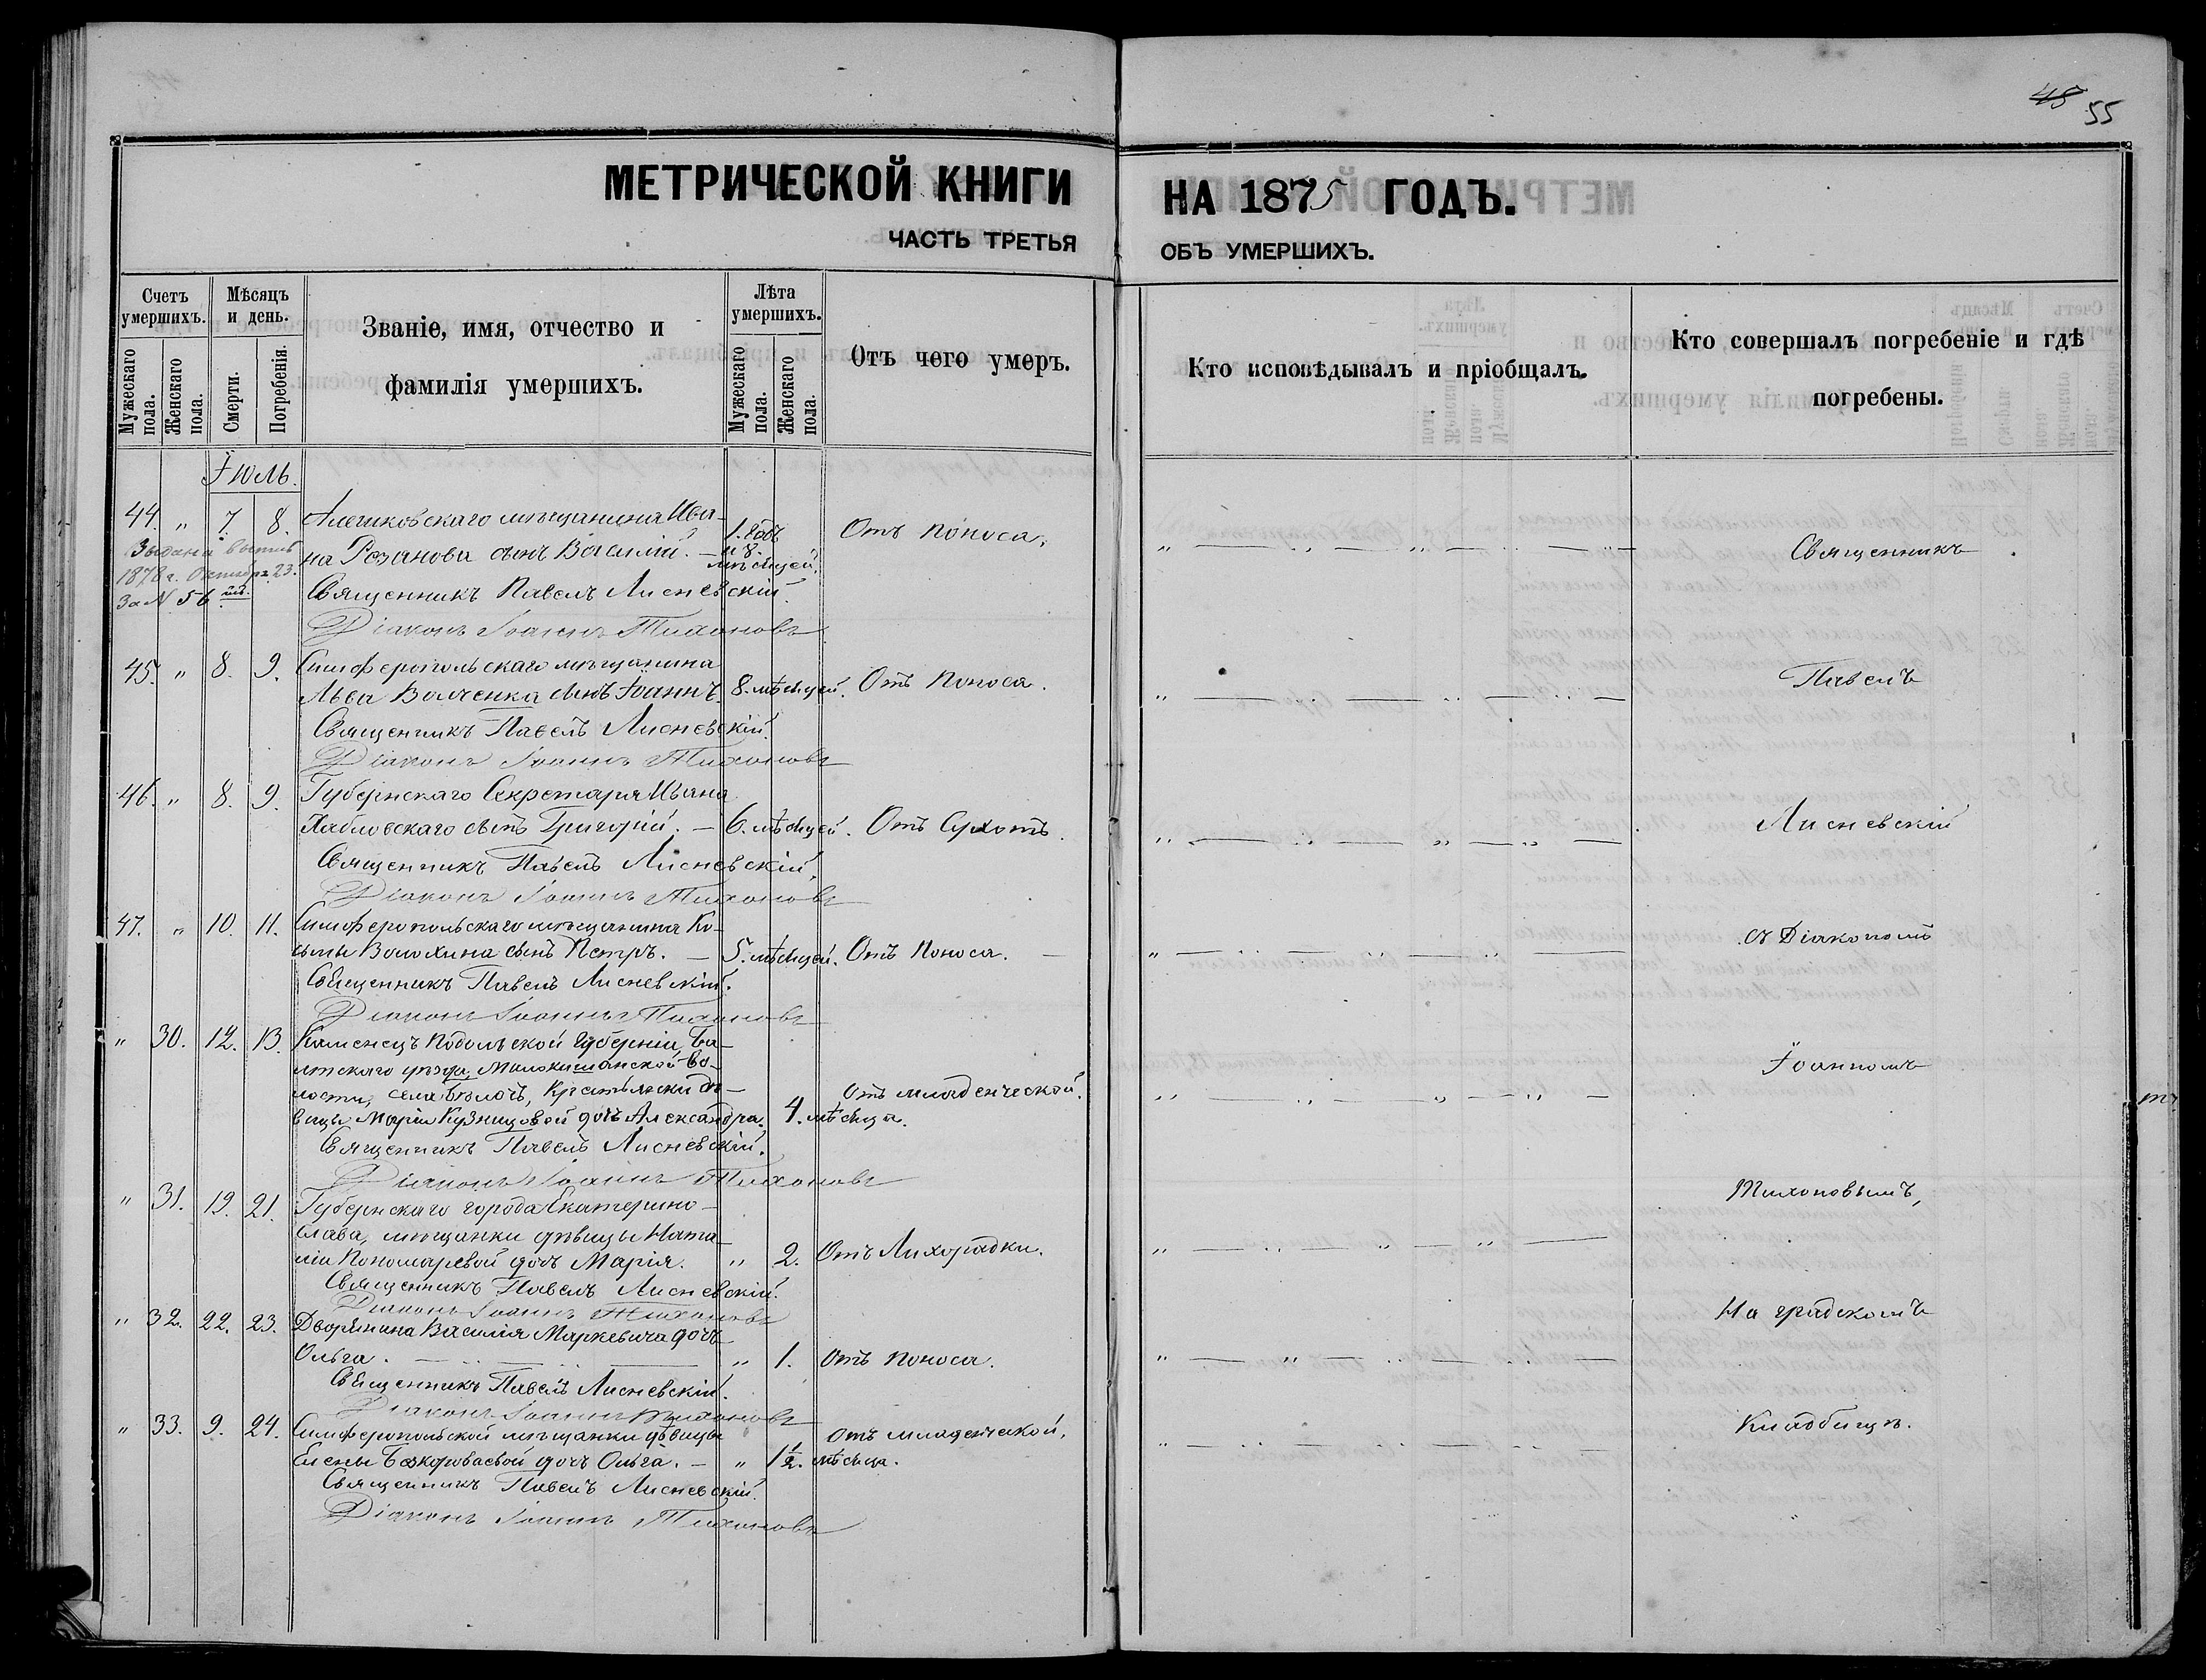 45 55
МЕТРИЧЕСКОЙ КНИГИ НА 1875 ГОДЪ.
ЧАСТЬ ТРЕТЬЯ ОБЪ УМЕРШИХЪ.
Счетъ умершихъ.
Мужескаго пола.
Женскаго пола.
Мѣсяцъ и день.
Смерти.
Погребенія.
Званіе, имя, отчество и
фамилія умершихъ.
Лѣта умершихъ.
Мужескаго пола.
Женскаго пола.
Отъ чего умеръ.
Кто исповѣдывалъ и пріобщалъ.
Кто совершалъ погребеніе и гдѣ
погребены.
Іюль.
44. „ 7. 8. Алешковскаго мѣщанина Ива-
на Резанова сынъ Василій. — 1. годъ и 8. мѣсяцей. Отъ поноса.
1878 г. Октября 23.
За № 56
Священникъ Павелъ Лисневскій.
Діаконъ Іоаннъ Тихоновъ
45. „ 8. 9. Симферопольскаго мѣщанина
Льва Волченка сынъ Іоаннъ. 8. мѣсяцей. Отъ поноса.
Священникъ Павелъ Лисневскій.
Діаконъ Іоаннъ Тихоновъ
46. „ 8. 9. Губернскаго Секретаря Ивана
Павловскаго сынъ Григорій. — 6. мѣсяцей. Отъ Сухотъ.
Священникъ Павелъ Лисневскій.
Діаконъ Іоаннъ Тихоновъ
47. „ 10. 11. Симферопольскаго мѣщанина Ко-
зьмы Волохина сынъ Петръ. — 5. мѣсяцей. Отъ поноса. —
Священникъ Павелъ Лисневскій.
Діаконъ Іоаннъ Тихоновъ
„ 30. 12. 13. Каменецъ Подольской Губерніи, Ба-
лтскаго уѣзда, во-
лости, села крестьянки дѣ-
вицы Маріи Кузнецовой дочь Александра. 4. мѣсяца. Отъ младенческой.
Священникъ Павелъ Лисневскій.
Діаконъ Іоаннъ Тихоновъ
„ 31. 19. 21. Губернскаго города Екатерино-
слава, мѣщанки дѣвицы Ната-
ліи Пономаревой дочь Марія. „ 2. Отъ Лихорадки.
Священникъ Павелъ Лисневскій.
Діаконъ Іоаннъ Тихоновъ
„ 32. 22. 23. Дворянина Василія Маркевича дочь
Ольга. „ 1. Отъ поноса.
Священникъ Павелъ Лисневскій.
Діаконъ Іоаннъ Тихоновъ
„ 33. 9. 24. Симферопольской мѣщанки дѣвицы
Елены Безкороваевой дочь Ольга. — „ 1½. мѣсяца. Отъ младенческой.
Священникъ Павелъ Лисневскій.
Діаконъ Іоаннъ Тихоновъ
Священникъ
Павелъ
Лисневскій
съ Діакономъ
Іоанномъ
Тихоновымъ,
На градскомъ
Кладбищѣ.